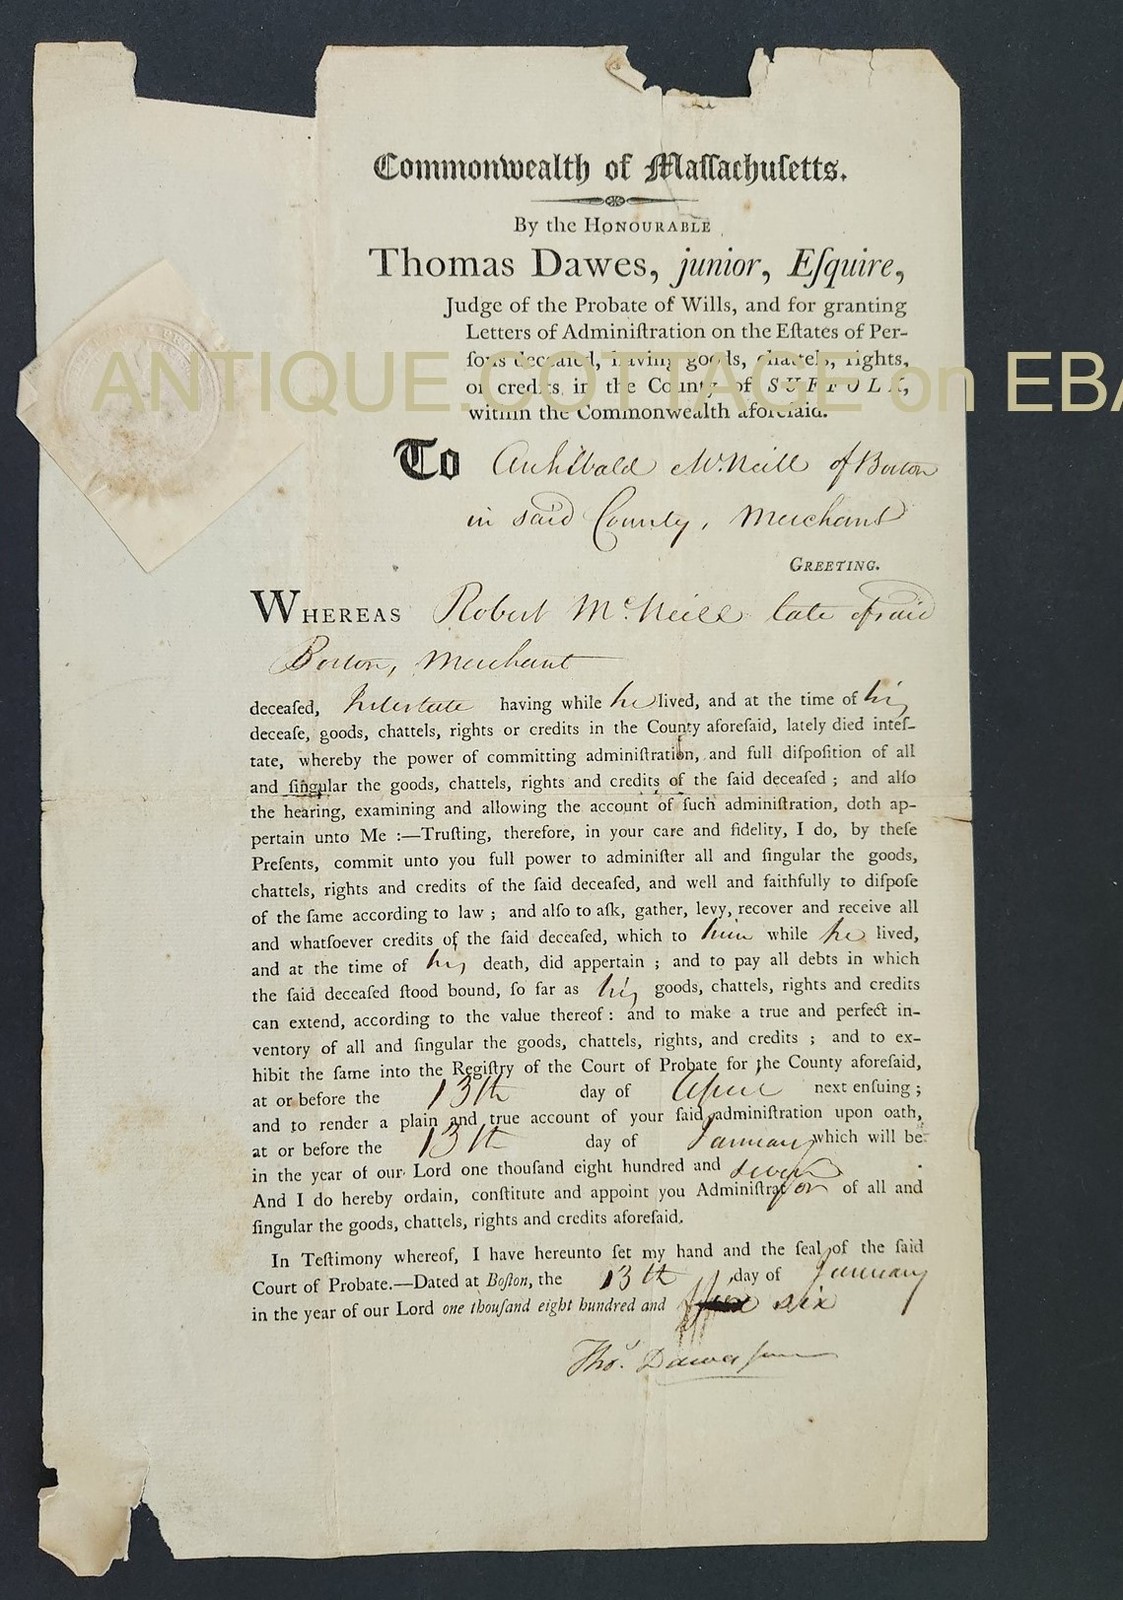 Commonwealth of Maſſachuſetts.
By the HONOURABLE
Thomas Dawes, junior, Eſquire,
Judge of the Probate of Wills, and for granting
Letters of Adminiſtration on the Eſtates of Per-
ſons deceaſed, having goods, chattels, rights,
or credits, in the County of SUFFOLK,
within the Commonwealth aforeſaid.
ANTIQUE.COTTAGE on EBA
To Archibald McNeill of Boston
in said County, Merchant
GREETING.
WHEREAS Robert McNeill late of said
Boston, Merchant
deceaſed, Intestate having while he lived, and at the time of his
deceaſe, goods, chattels, rights or credits in the County aforeſaid, lately died inteſ-
tate, whereby the power of committing adminiſtration, and full diſpoſition of all
and ſingular the goods, chattels, rights and credits of the ſaid deceaſed ; and alſo
the hearing, examining and allowing the account of ſuch adminiſtration, doth ap-
pertain unto Me :—Truſting, therefore, in your care and fidelity, I do, by theſe
Preſents, commit unto you full power to adminiſter all and ſingular the goods,
chattels, rights and credits of the ſaid deceaſed, and well and faithfully to diſpoſe
of the ſame according to law ; and alſo to aſk, gather, levy, recover and receive all
and whatſoever credits of the ſaid deceaſed, which to him while he lived,
and at the time of his death, did appertain ; and to pay all debts in which
the ſaid deceaſed ſtood bound, ſo far as his goods, chattels, rights and credits
can extend, according to the value thereof : and to make a true and perfect in-
ventory of all and ſingular the goods, chattels, rights, and credits ; and to ex-
hibit the ſame into the Regiſtry of the Court of Probate for the County aforeſaid,
at or before the 13th day of April next enſuing ;
and to render a plain and true account of your ſaid adminiſtration upon oath,
at or before the 13th day of January which will be
in the year of our Lord one thouſand eight hundred and seven
And I do hereby ordain, conſtitute and appoint you Adminiſtrator of all and
ſingular the goods, chattels, rights and credits aforeſaid.
In Teſtimony whereof, I have hereunto ſet my hand and the ſeal of the ſaid
Court of Probate.—Dated at Boſton, the 13th day of January
in the year of our Lord one thouſand eight hundred and six
Thos. Dawes junr